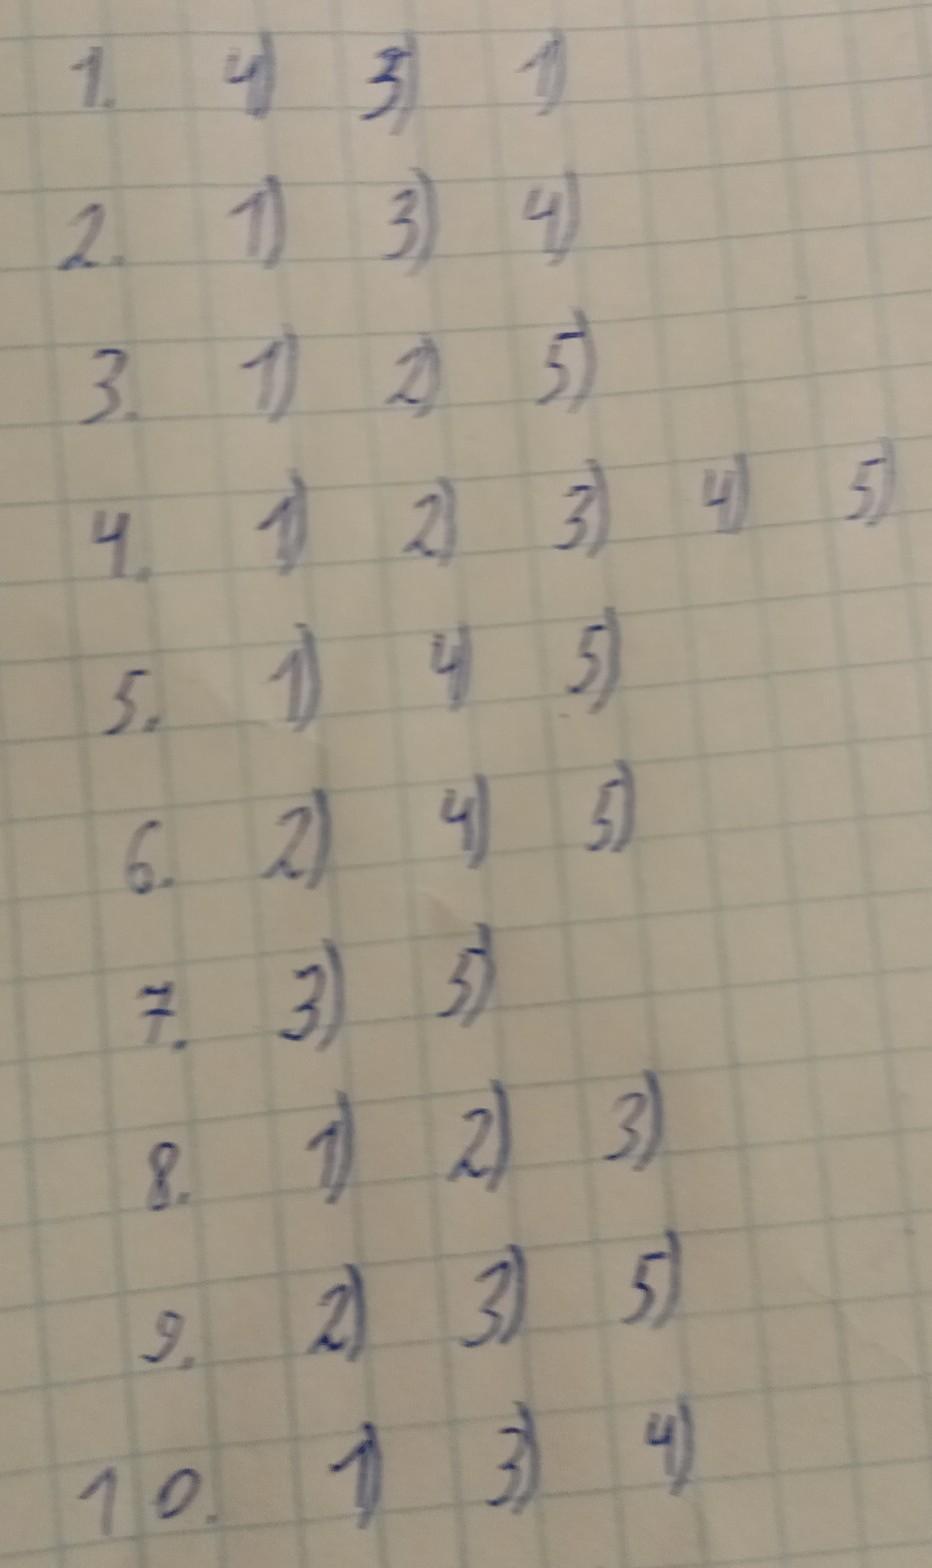 1. 4) 3) 1)
2. 1) 3) 4)
3. 1) 2) 5)
4. 1) 2) 3) 4) 5)
5. 1) 4) 5)
6. 2) 4) 5)
7. 3) 5)
8. 1) 2) 3)
9. 2) 3) 5)
10. 1) 3) 4)